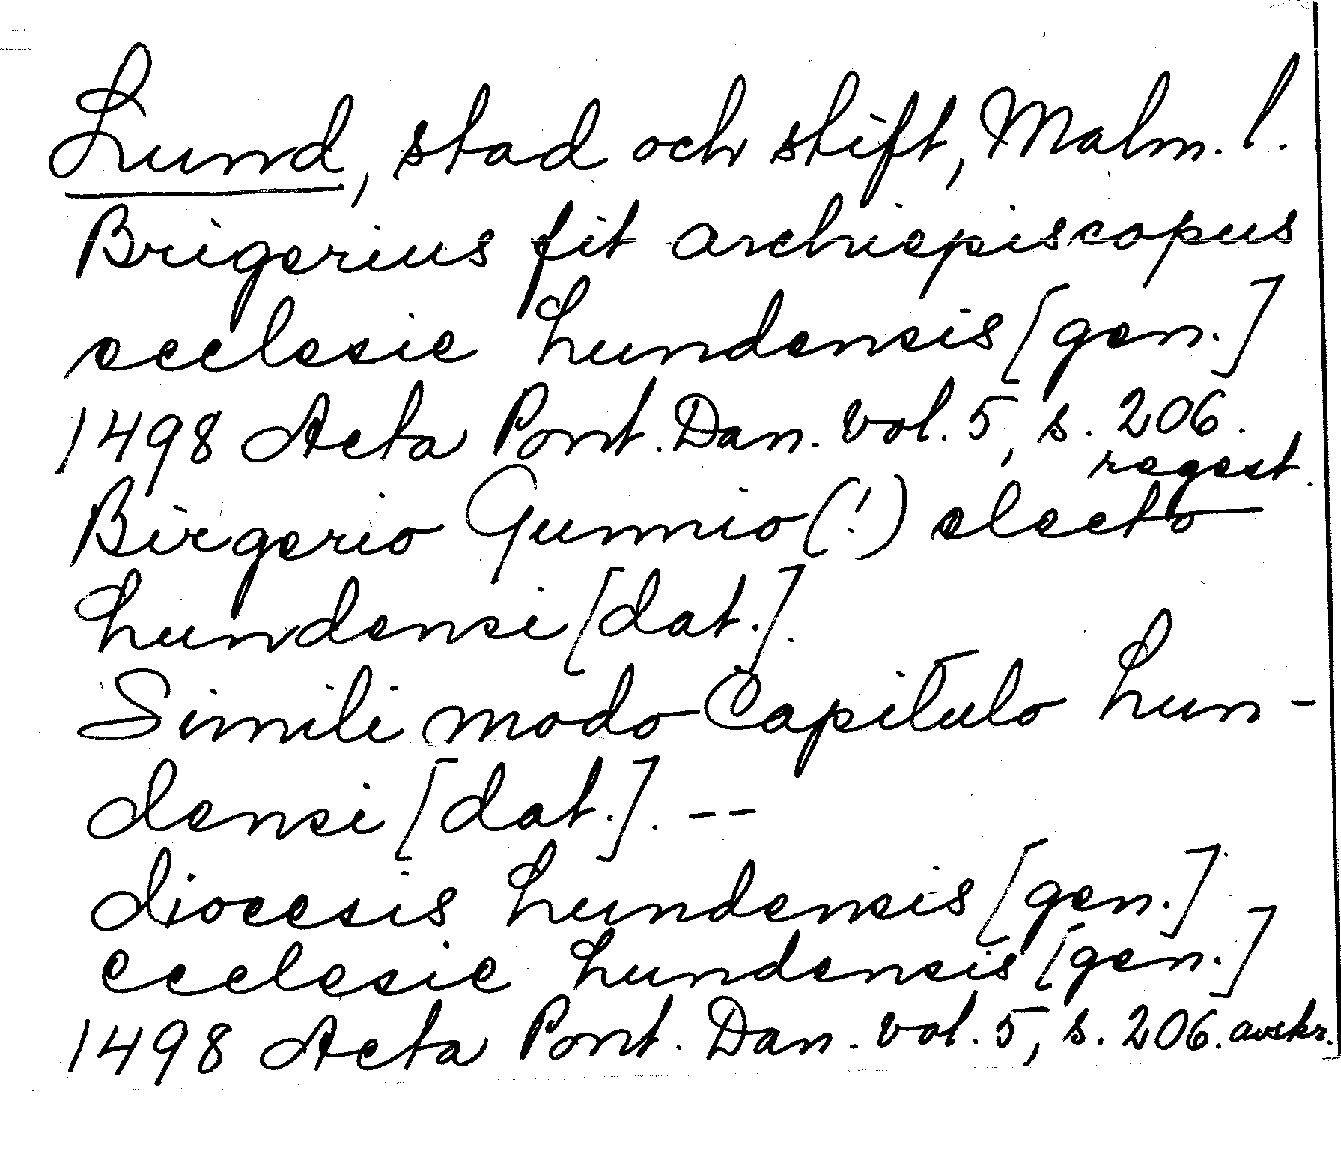 Lund, stad och stift, Malm. l.
Brigerius fit archiepiscopus
ecclesie Lundensis [gen.]
1498 Acta Pont. Dan. vol. 5, s. 206.
regest.
Birgerio Gunnio (!) electo
Lundensi [dat.].
Simili modo Capitulo Lun-
densi [dat.]. --
diocesis Lundensis [gen.]
ecclesie Lundensis [gen.]
1498 Acta Pont. Dan. vol. 5, s. 206. avskr.